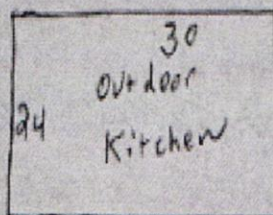 30
Outdoor
24
Kitchen